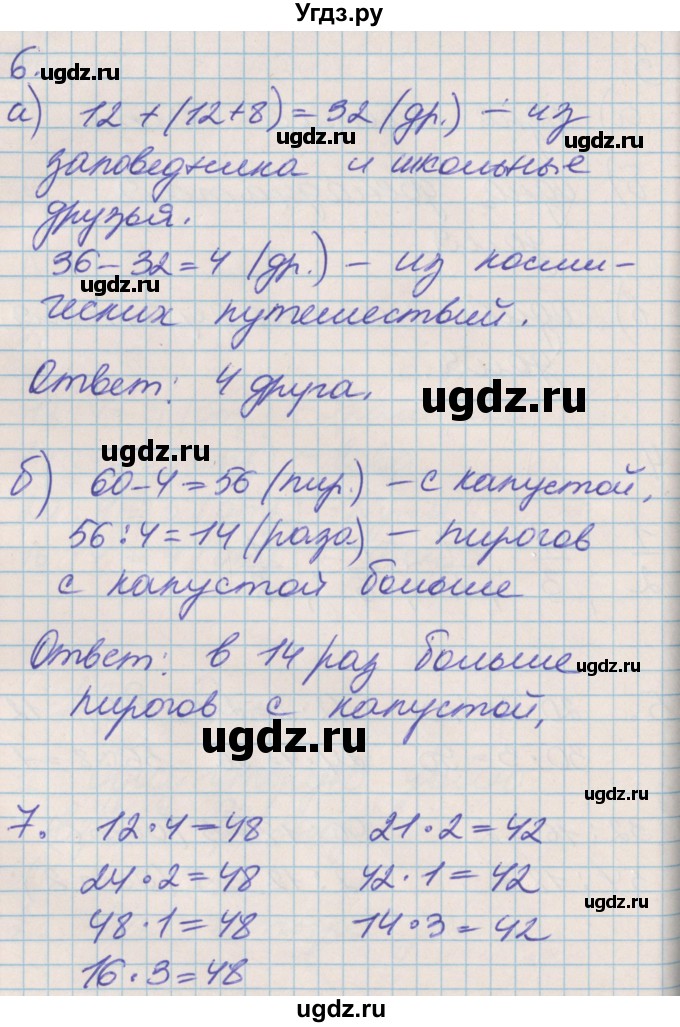 Угдз.ру
6.
ugdz.ru
а) 12 + (12+8) = 32 (др.) – из
ugdz.ru
заповедника и школьные
друзья.
36 – 32 = 4 (др.) – из косми-
ugdz.ru
ческих путешествий.
Ответ: 4 друга.
ugdz.ru
ugdz.ru
б) 60 – 4 = 56 (пир.) – с капустой,
56 : 4 = 14 (раза) – пирогов
ugdz.ru
с капустой больше
Ответ: в 14 раз больше
ugdz.ru
пирогов с капустой,
ugdz.ru
ugdz.ru
7. 12 · 4 = 48 21 · 2 = 42
24 · 2 = 48 42 · 1 = 42
ugdz.ru
ugdz.ru
48 · 1 = 48 14 · 3 = 42
16 · 3 = 48
ugdz.ru